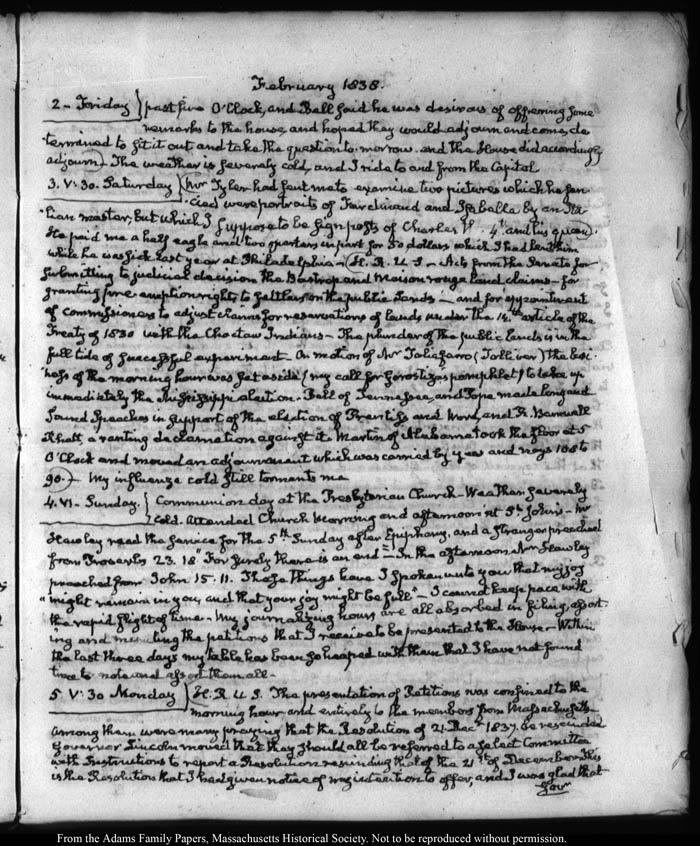 February 1838.
2 – Friday } past five O'Clock, and Bell said he was desirous of offering some
remarks to the house, and hoped they would adjourn and come, de
termined to sit it out and take the question to-morrow. and the House did accordingly
adjourn) – The weather is severely cold, and I ride to and from the Capitol
3. V: 30. Saturday } (Mr Tyler had sent me to examine two pictures which he fan
cied were portraits of Ferdinand and Isabella by an Ita
lian master; but which I suppose to be sign posts of Charles 4th and his queen.
He paid me a half eagle and two quarters in part for 50 dollars which I had lent him
while he was sick last year at Philadelphia – (H. R. U. S – Acts from the Senate for
submitting to judicial decision the Bastrop and Maison rouge land claims – for
granting pre-emption rights to settlers on the public Lands – and for appointment
of commissioners to adjust claims for reservations of lands under the 14th article of the
Treaty of 1830 with the Choctaw Indians – The plunder of the public lands is in the
full tide of successful experiment. On motion of Mr Taliaferro (Tolliver) the busi
ness of the morning hour was set aside (my call for Gorostiza's pamphlet) to take up
immediately the Mississippi election – Bell of Tennessee, and Pope made long and
sound Speeches in support of the election of Prentiss and Word, and R. Barnwell
Rhett, a ranting declamation against it. Martin of Alabama took the floor at 5
O'Clock and moved an adjournment which was carried by yeas and nays 100 to
90.) – My influenza cold still torments me
4. VI – Sunday. } Communion day at the Presbyterian Church – Weather severely
cold. Attended Church Morning and afternoon at St John's – Mr
Hawley read the service for the 5th Sunday after Epiphany, and a stranger preached
from Proverbs 23. 18 "For surely there is an end" – In the afternoon Mr Hawley
preached from John 15. 11. These things have I spoken unto you that my joy
"might remain in you, and that your joy might be full" – I cannot keep pace with
the rapid flight of time – My journalizing hours are all absorbed in filing, assort
ing and the petitions that I receive to be presented to the House – Within
the last three days my table has been so heaped with them that I have not found
time to note and assort them all –
5. V: 30 Monday } H. R. U. S. The presentation of Petitions was confined to the
morning hour and entirely to the members from Massachusetts –
Among them were many praying that the Resolution of 21. Decr 1837. be rescinded
Governor Lincoln moved that they should all be referred to a select Committee
with Instructions to report a Resolution rescinding that of the 21st of December. This
is the Resolution that I had given notice of my intention to offer, and I was glad that
Govr
From the Adams Family Papers, Massachusetts Historical Society. Not to be reproduced without permission.